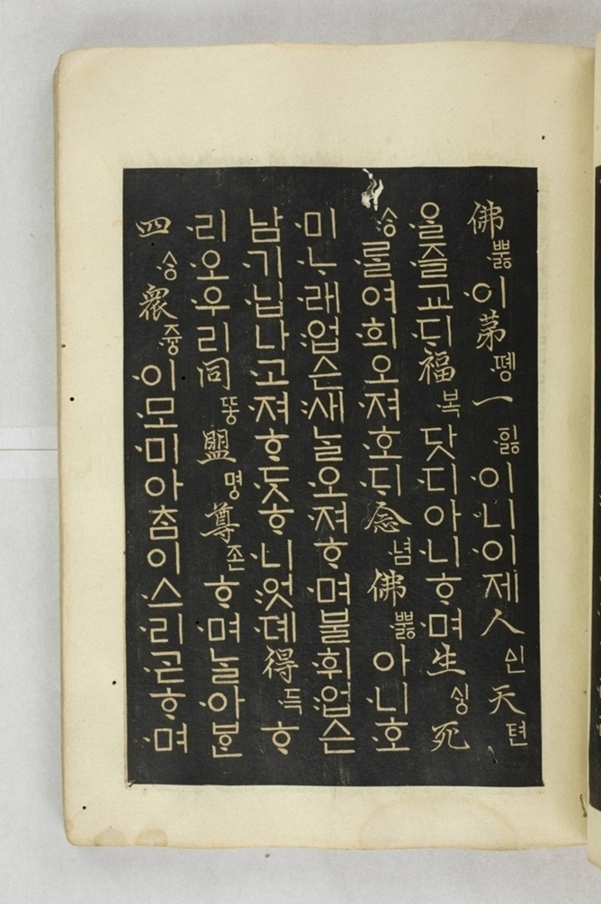 佛뿌ᇙ이第똉一ᅙᅵᇙ이니이제人ᅀᅵᆫ天텬
을즐교ᄃᆡ福복닷디아니ᄒᆞ며生ᄉᆡᇰ死
ᄉᆞᆼ를여희오져호ᄃᆡ念념佛뿌ᇙ아니호
미ᄂᆞ래업슨새ᄂᆞᆯ오져ᄒᆞ며불휘업슨
남기닙나고져ᄒᆞᄃᆞᆺᄒᆞ니엇뎨得득ᄒᆞ
리오우리同똥盟명尊존ᄒᆞ며ᄂᆞᆯ아ᄫᆞᆫ
四ᄉᆞᆼ衆쥬ᇰ이모미아ᄎᆞᆷ이스리ᄀᆞᆮᄒᆞ며